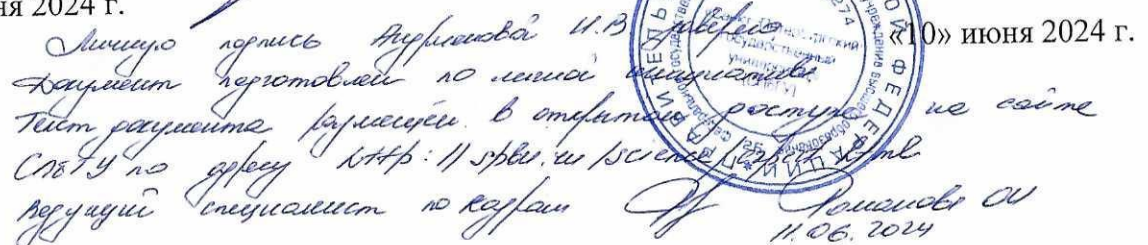 ня 2024 г.
«10» июня 2024 г.
Личную подпись Андриановой И.В заверяю
Документ подготовлен по личной инициативе
Текст документа размещен в открытом доступе на сайте
СПбГУ по адресу http://spbu.ru/science/expert.html
Ведущий специалист по кадрам Романова ОИ
11.06.2024